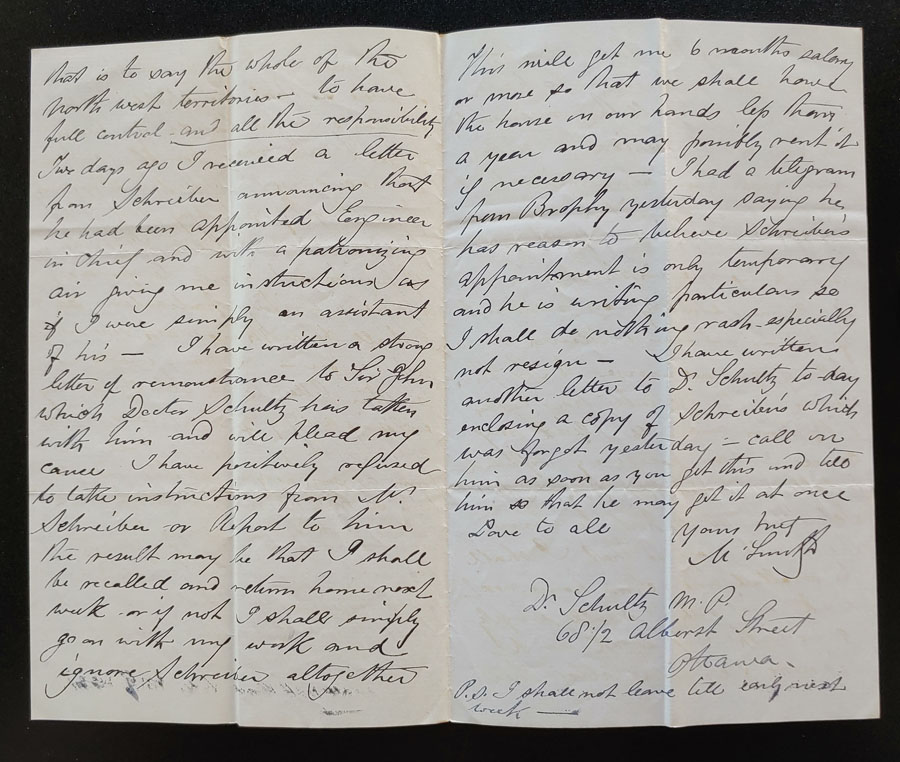 that is to say the whole of the
North west territories – to have
full control – and all the responsibility
Two days ago I received a letter
from Schreiber announcing that
he had been appointed Engineer
in Chief and with a patronizing
air giving me instructions as
if I were simply an assistant
of his — I have written a strong
letter of remonstrance to Sir John
which Doctor Schultz has taken
with him and will plead my
cause I have positively refused
to take instructions from Mr
Schreiber or Report to him
the result may be that I shall
be recalled and return home next
week – or if not I shall simply
go on with my work and
ignore Schreiber altogether
This will get me 6 months salary
or more so that we shall have
the house on our hands less than
a year and may possibly rent it
if necessary — I had a telegram
from Brophy yesterday saying he
has reason to believe Schreiber's
appointment is only temporary
and he is writing particulars so
I shall do nothing rash – especially
not resign — I have written
another letter to Dr. Schultz to-day
enclosing a copy of Schreiber's which
was forgot yesterday – call on
him as soon as you get this and tell
him so that he may get it at once
Love to all yours
M Smith
Dr. Schultz M.P.
68 1/2 Albert Street
Ottawa.
P.S. I shall not leave till early next
week —